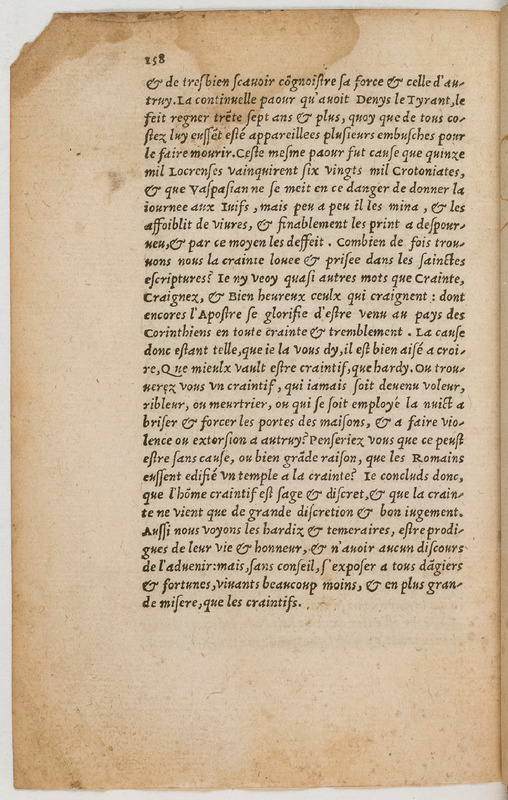 158
& de tresbien scauoir cõgnoistre sa force & celle d'au-
truy. La continuelle paour qu'auoit Denys le Tyrant, le
feit regner trẽte sept ans & plus, quoy que de tous co-
stez luy eussẽt esté appareillees plusieurs embusches pour
le faire mourir. Ceste mesme paour fut cause que quinze
mil Locrenses vainquirent six vingts mil Crotoniates,
& que Vaspasian ne se meit en ce danger de donner la
iournee aux Iuifs, mais peu a peu il les mina, & les
affoiblit de viures, & finablement les print a despour-
ueu, & par ce moyen les deffeit. Combien de fois trou-
uons nous la crainte louee & prisee dans les sainctes
escriptures? Ie ny veoy quasi autres mots que Crainte,
Craignez, & Bien heureux ceulx qui craignent: dont
encores l'Apostre se glorifie d'estre venu au pays des
Corinthiens en toute crainte & tremblement. La cause
donc estant telle, que ie la vous dy, il est bien aisé a croi-
re, Que mieulx vault estre craintif, que hardy. Ou trou-
uerez vous vn craintif, qui iamais soit deuenu voleur,
ribleur, ou meurtrier, ou qui se soit employé la nuict a
briser & forcer les portes des maisons, & a faire vio-
lence ou extorsion a autruy? Penseriez vous que ce peust
estre sans cause, ou bien grãde raison, que les Romains
eussent edifié vn temple a la crainte? Ie concluds donc,
que l'hõme craintif est sage & discret, & que la crain-
te ne vient que de grande discretion & bon iugement.
Aussi nous voyons les hardiz & temeraires, estre prodi-
gues de leur vie & honneur, & n'auoir aucun discours
de l'aduenir: mais, sans conseil, s'exposer a tous dãgiers
& fortunes, viuants beaucoup moins, & en plus gran-
de misere, que les craintifs.